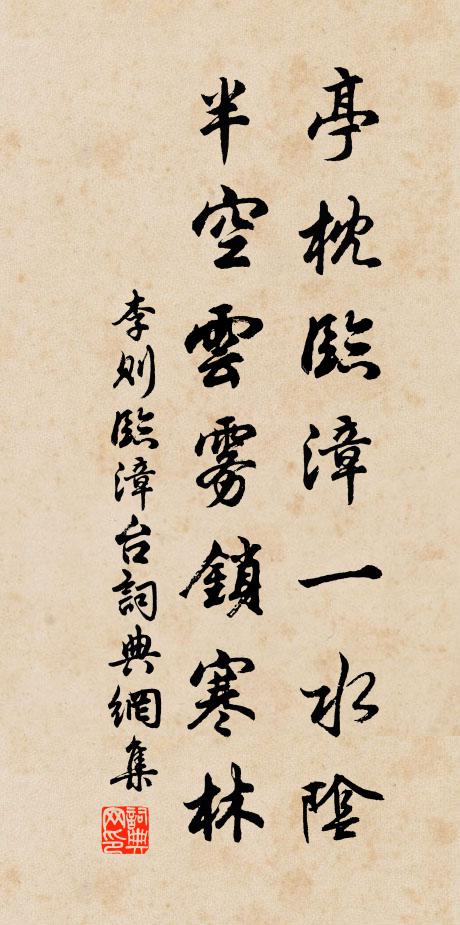 亭枕臨漳一水陰
半空雲霧鎖寒林
李則臨漳台詞典網集
詞典网印